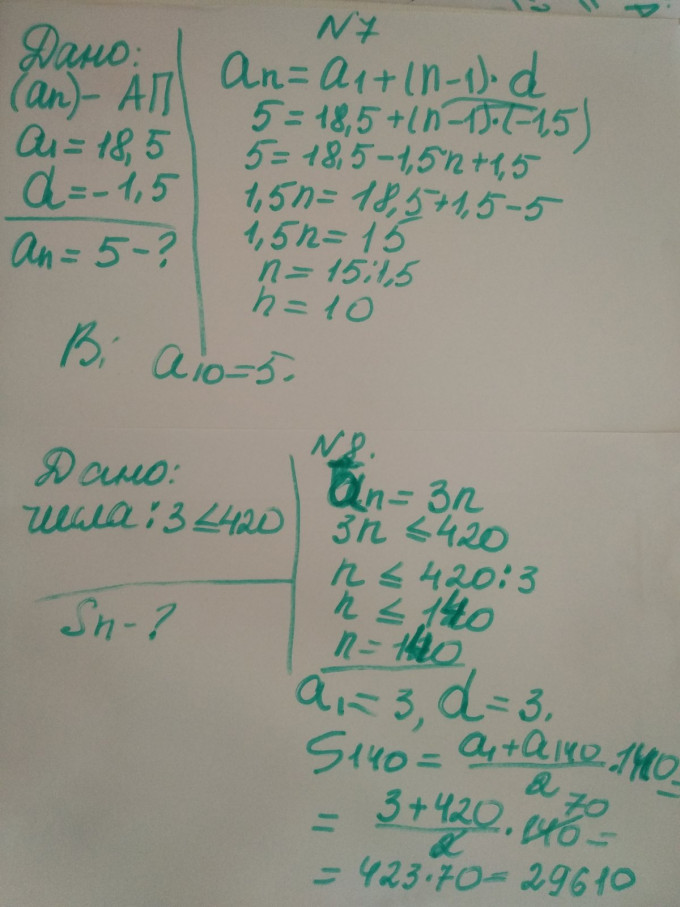 N7
Дано:
(an) - АП
a1 = 18,5
d = -1,5
an = 5 - ?
an = a1 + (n-1)·d
5 = 18,5 + (n-1)·(-1,5)
5 = 18,5 - 1,5n + 1,5
1,5n = 18,5 + 1,5 - 5
1,5n = 15
n = 15:1,5
n = 10
В: a10 = 5.
N8.
Дано:
числа ⋮ 3 ≤ 420
Sn - ?
an = 3n
3n ≤ 420
n ≤ 420:3
n ≤ 140
n = 140
a1 = 3, d = 3.
S140 = (a1 + a140)/2 · 140 =
= (3 + 420)/2 · 140 = 70
= 423·70 = 29610